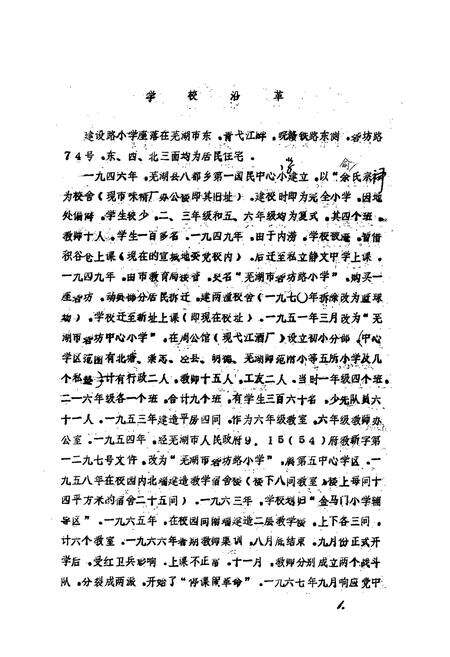 学校沿革
建设路小学座落在芜湖市东，青弋江畔，皖赣铁路东测，砻坊路
74号，东、四、北三面均为居民住宅。
一九四六年，芜湖县八都乡第一国民中心小建立，以“余氏宗祠
为校舍（现市味精厂办公楼即其旧址）。建校时即为完全小学。因地
处偏僻，学生较少，二、三年级和五、六年级均为复式，共四个班，
教师十人，学生一百多名。一九四九年，由于内涝，学校被淹，暂借
积谷仓上课（现在的宣城地委党校内）。后迁至私立静文中学上课。
一九四九年，由市教育局接管，更名“芜湖市砻坊路小学”。购买一
座砻坊，动员部分居民拆迁，建两道校舍（一九七〇年拆除改为篮球
场）。学校迁至新址上课（即现在校址）。一九五一年三月改为“芜
湖市砻坊中心小学”。在周公馆（现弋江酒厂）设立初小分部，（中心
学区范围有北塘、崇志、泾县、明德、芜湖师范附小等五所小学及几
个私塾）计有行政二人，教师十五人，工友二人，当时一年级四个班，
二一六年级各一个班，合计九个班，有学生三百六十名，少先队员六
十一人。一九五三年建造平房四间，作为六年级教室，六年级教师办
公室。一九五四年，经芜湖市人民政府9，15（54）府教新字第
一二九七号文件，改为“芜湖市砻坊路小学”，属第五中心学区。一
九五八年在校园内北端建造教学宿舍楼（楼下八间教室，楼上每间十
四平方米的宿舍二十五间）。一九六三年，学校划归“金马门小学辅
导区”。一九六五年，在校园南端建造二层教学楼，上下各三间，
计六个教室。一九六六年暑期教师集训，八月底结束，九月份正式开
学后，受红卫兵影响，上课不正常，十一月，教师分别成立两个战斗
队，分裂成两派，开始了“停课闹革命”。一九六七年九月响应党中
1.